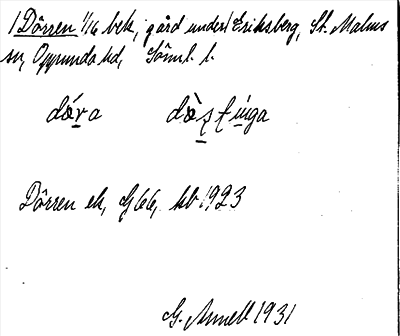 1 Dörren 1/16 bek, gård under Eriksberg, St. Malms
sn, Oppunda hd, Söml. l.
dóra dòsfúnga
Dörren ek, G66, kb 1923
G. Annell 1931